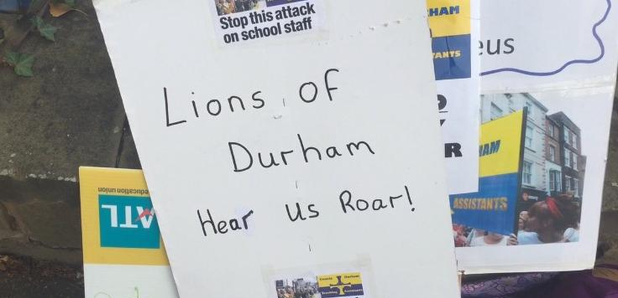 Stop this attack
on school staff
Lions of
Durham
Hear us Roar!
HAM
ANTS
eus
R
AM
ASSISTANTS
education union
ATL